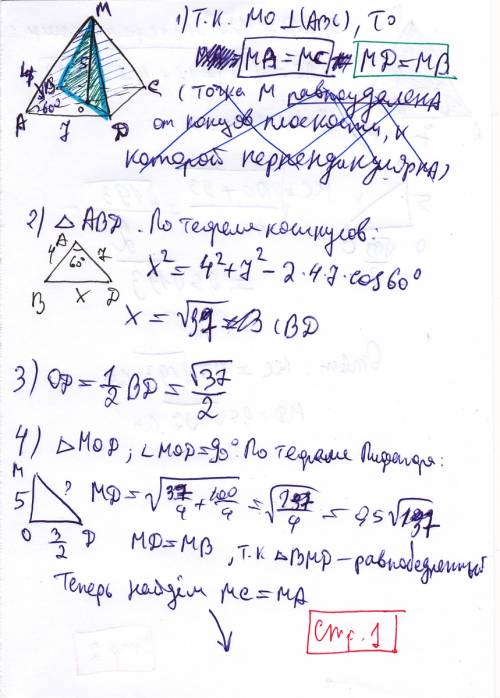 M
1) Т.к. МО ⊥ (ABC), то
MA = MC MD = MB
(точка М равноудалена
от концов плоскости, к
которой перпендикулярна)
5
C
4
B
60°
A
7
O
D
2) △ ABD. По теореме косинусов:
A
4 60° 7
B X D
X² = 4² + 7² - 2·4·7·cos60°
X = √37 BD
3) OD = 1/2 BD = √37/2
4) △ MOD, ∠MOD = 90°. По теореме Пифагора:
M
5 ?
O D
MD = √(37/4 + 100/4) = √(137/4) = 0,5√137
MD = MB, т.к △BMD - равнобедренный
Теперь найдём MC = MA
стр. 1